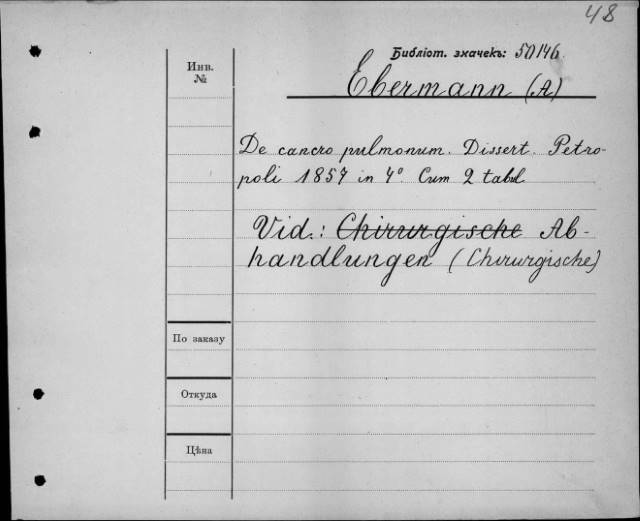 48
Библіот. значекъ: 50146
Инв. №
Ebermann (A)
De cancro pulmonum. Dissert. Petro-
poli 1857 in 4º. Cum 2 tabul
Vid.: Chirurgische Ab-
handlungen (Chirurgische)
По заказу
Откуда
Цѣна